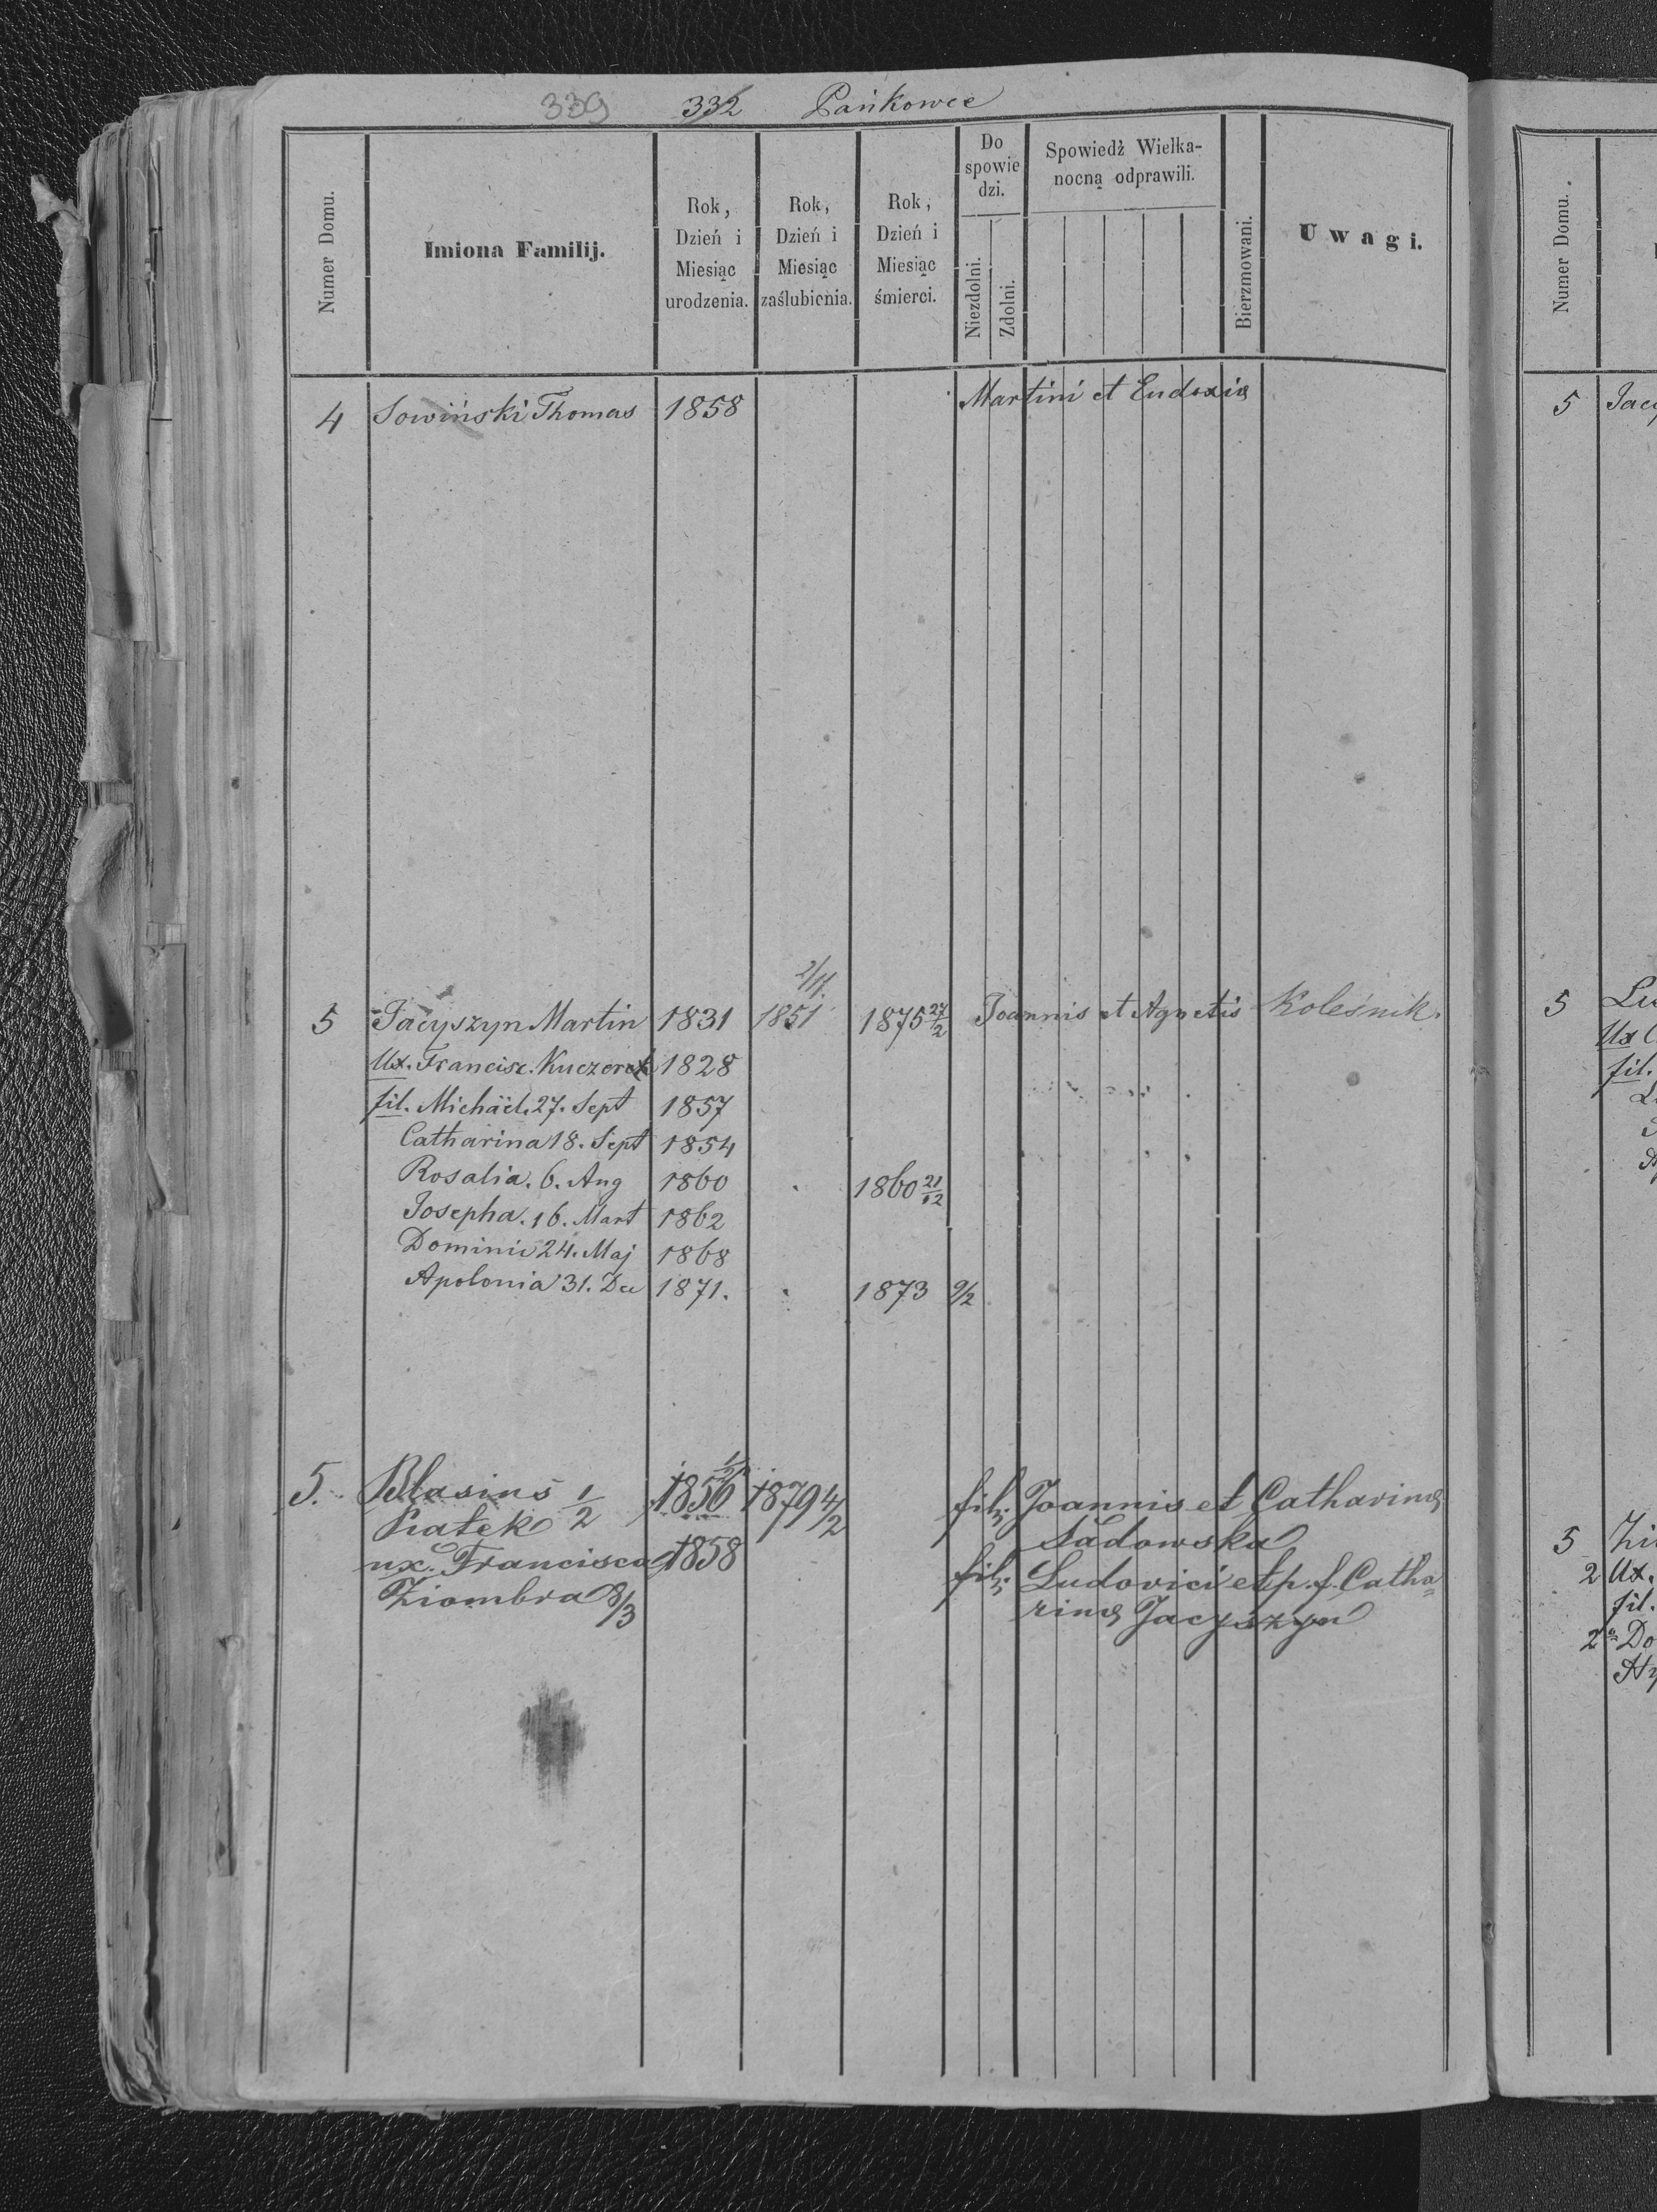 339 332 Pańkowce
Numer Domu.
Imiona Familij.
Rok, Dzień i Miesiąc urodzenia.
Rok, Dzień i Miesiąc zaślubienia.
Rok, Dzień i Miesiąc śmierci.
Do spowiedzi.
Niezdolni.
Zdolni.
Spowiedź Wielka-
nocną odprawili.
Bierzmowani.
Uwagi.
4 Sowiński Thomas 1858 Martini et Eudoxiæ
2/11.
5 Jacyszyn Martin 1831 1851 1875 27/2 Joannis et Agnetis Koleśnik.
Ux. Francisc. 1828
fil. Michäel. 27. Sept 1857
Catharina 18. Sept 1854
Rosalia. 6. Aug 1860 1860 21/12
Josepha. 16. Mart 1862
Dominic 24. Maj 1868
Apolonia 31. Dec 1871. 1873 9/2
5. Blasius 1/2 1856 1879 4/2 fil. Joannis et Catharinæ
Piątek Sadowska
ux. Francisca 1858 fil. Ludovici et p. f. Catha=
Ziombra 8/3 rinæ Jacyszyn
Numer Domu.
5 Jacy
5 Lu
Ux
fil.
5 Zi
2 Ux.
fil.
2 Do